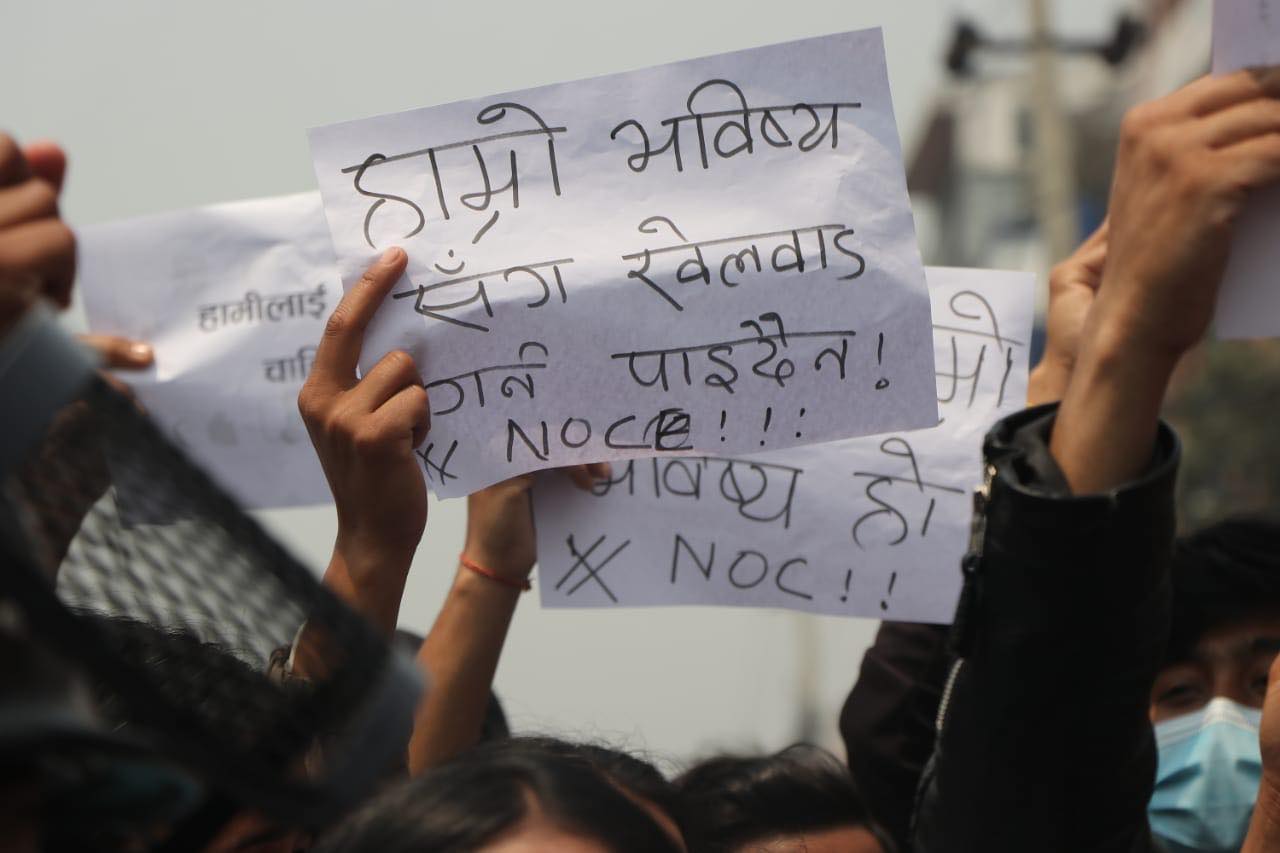 हाम्रो भविष्य
सँग खेलवाड
गर्न पाइदैन!
* NOC!!!
हामीलाई
भविष्य हो
* NOC!!